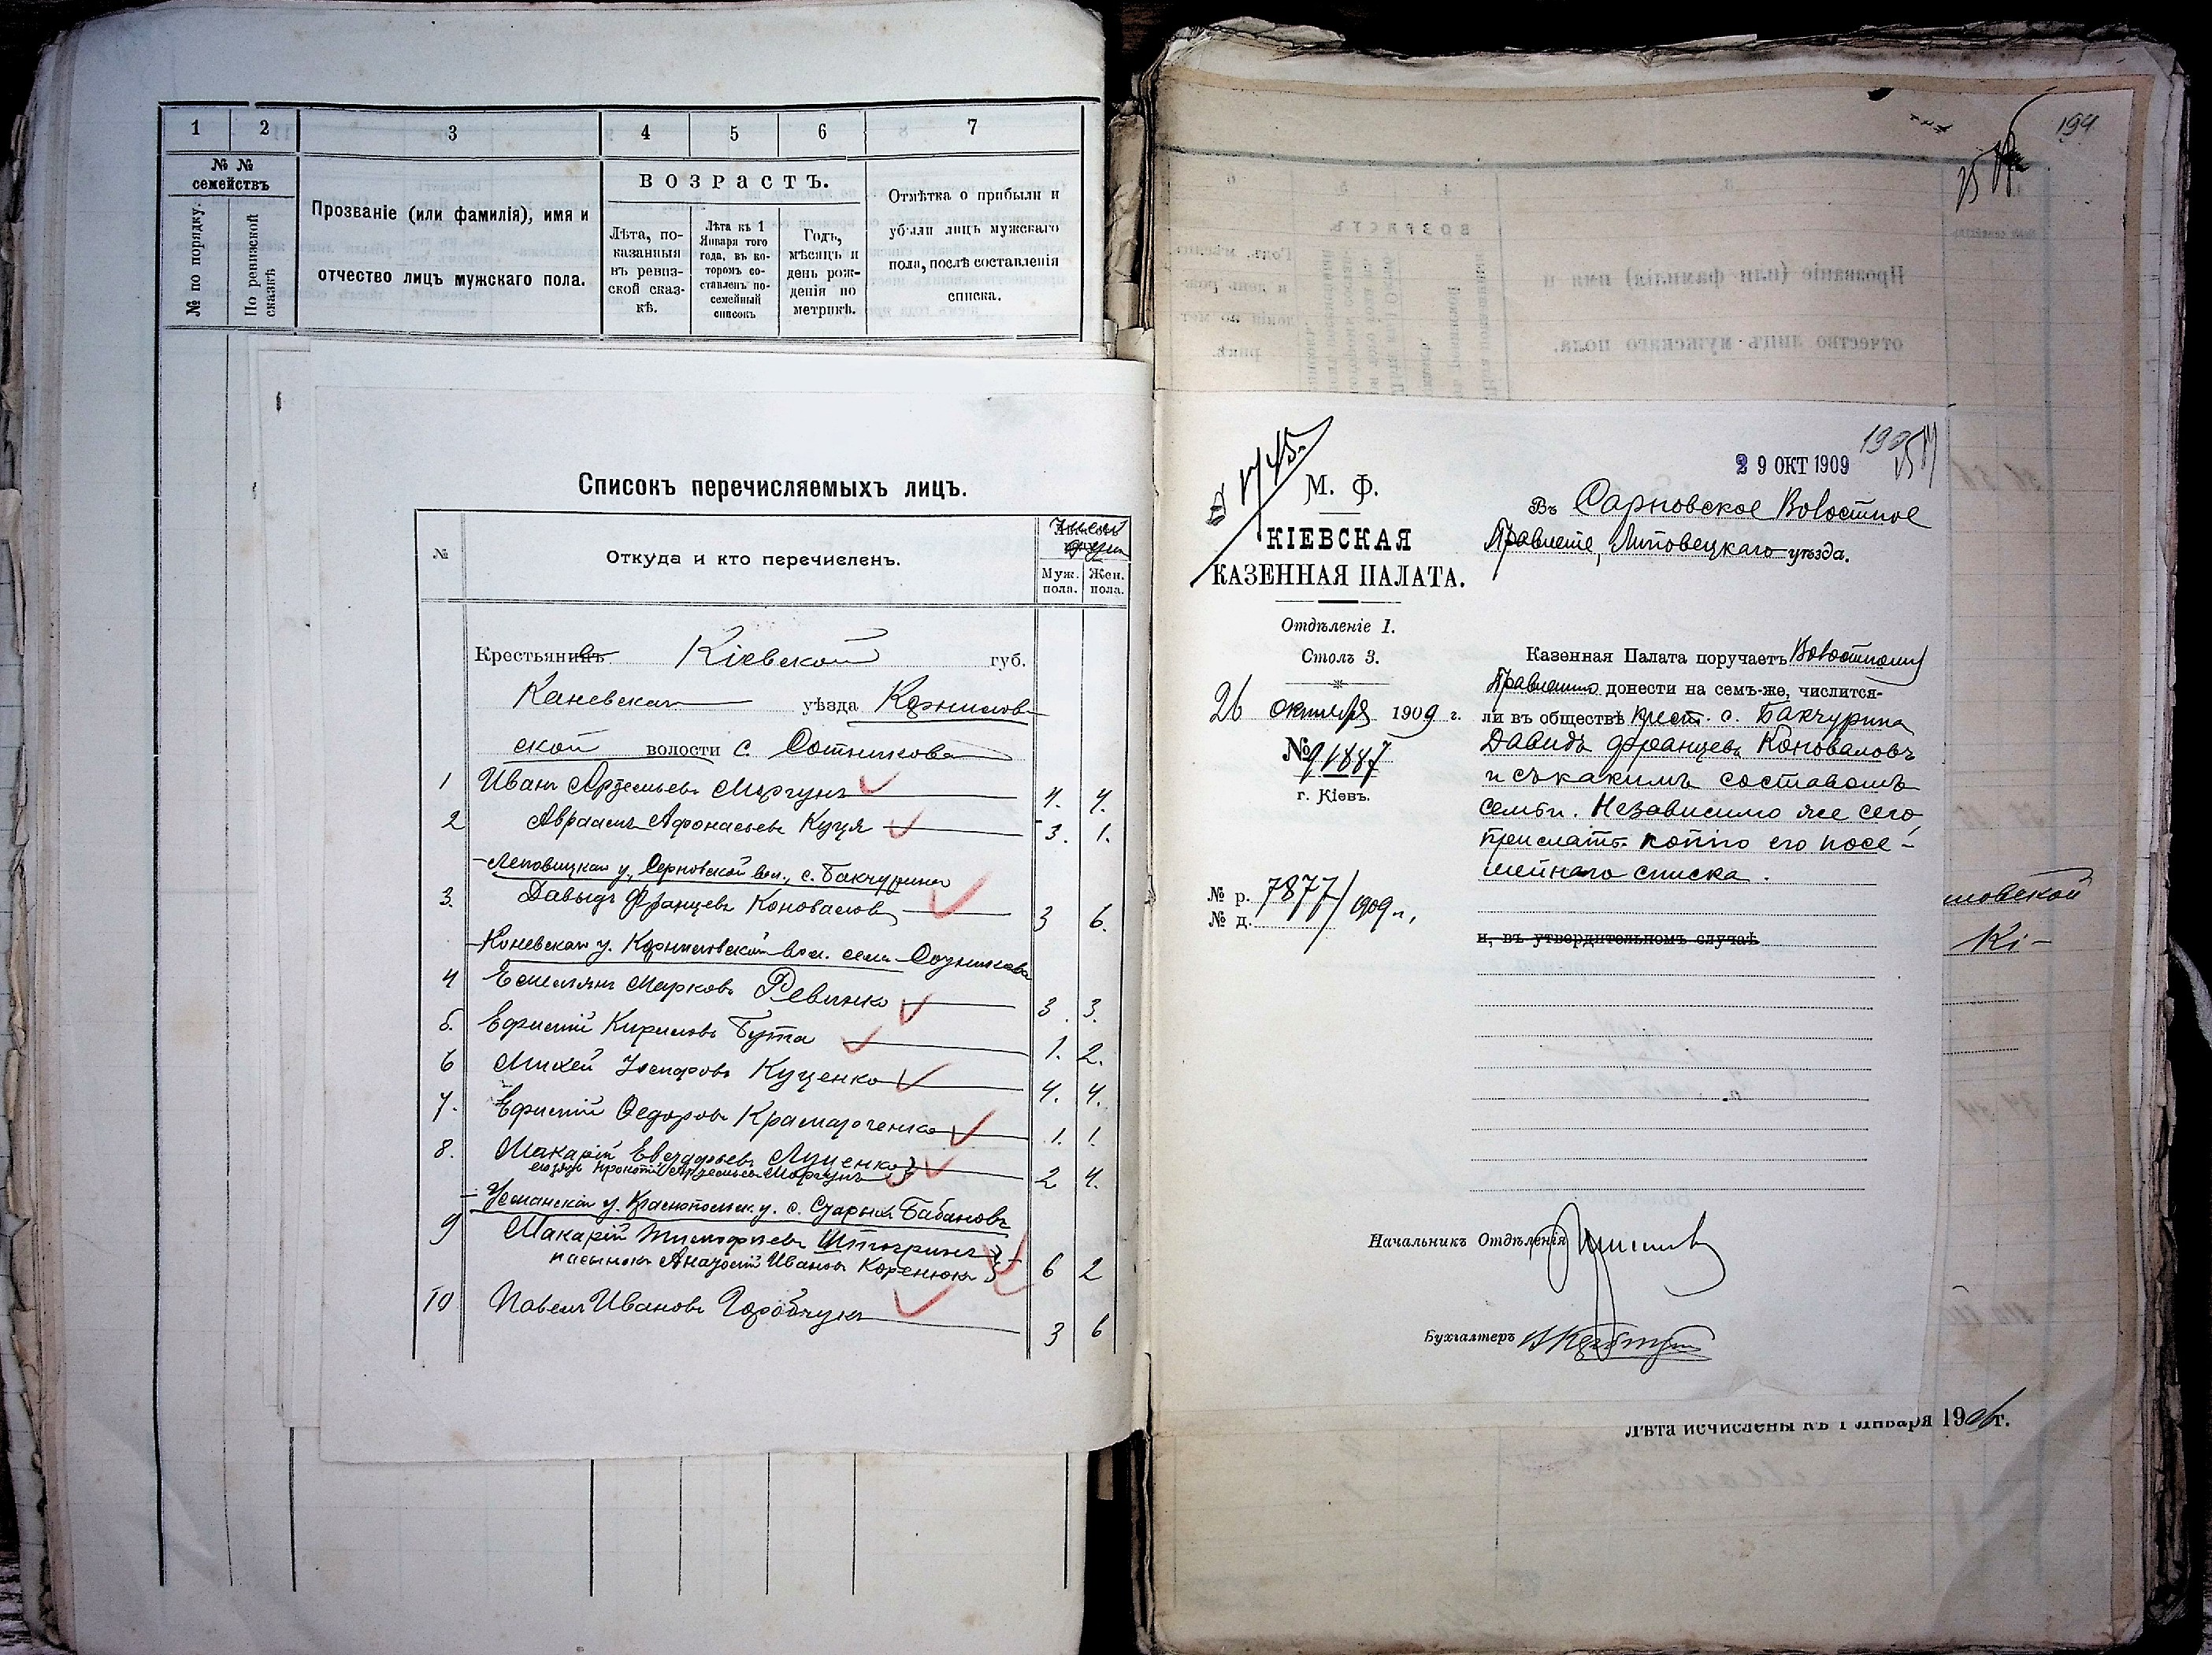 1 2 3 4 5 6 7
№ №
семействъ
№ по порядку.
По ревизской
сказкѣ
Прозваніе (или фамилія), имя и
отчество лицъ мужскаго пола.
ВОЗРАСТЪ.
Лѣта, по-
казанныя
въ ревиз-
ской сказ-
кѣ.
Лѣта къ 1
Января того
года, въ ко-
торомъ со-
ставленъ по-
семейный
списокъ
Годъ,
мѣсяцъ и
день рож-
денія по
метрикѣ.
Отмѣтка о прибыли и
убыли лицъ мужскаго
пола, послѣ составленія
списка.
Списокъ перечисляемыхъ лицъ.
№
Откуда и кто перечисленъ.
Число
душъ
Муж.
пола.
Жен.
пола.
Крестьянинъ Кіевской губ.
Каневскаго уѣзда Корнилов-
ской волости с. Сотникова
1 Иванъ Артемьевъ Моргунъ 4. 4.
2 Авраамъ Афонасьевъ Куця 3. 1.
Липовецкаго у., Сарновской вол., с. Бакчурина
3. Давыдъ Францевъ Коноваловъ 3 6.
Каневскаго у. Корниловской вол. села Сотникова
4 Емельянъ Марковъ Ревинко 3. 3.
5. Ефимій Кириловъ Бута 1. 2.
6 Михей Куценко 4. 4.
7. Ефимій Федоровъ Крамаренко 1. 1.
8. Макарій Луценко
Артемьевъ Моргунъ 2 4.
Уманскаго у. с. Старыхъ Бабановъ
9 Макарій Тимофеевъ
пасынокъ Иванов Коренюкъ 6 2
10 Павелъ Ивановъ Горобчукъ 3 6
194
29 ОКТ 1909
М. Ф.
КІЕВСКАЯ
КАЗЕННАЯ ПАЛАТА.
Отдѣленіе 1.
Столъ 3.
26 октября 1909 г.
№ 91887
г. Кіевъ.
№ р. 7877/1909 г.
№ д.
Въ Сарновское Волостное
Правленіе, Липовецкаго уѣзда.
Казенная Палата поручаетъ Волостному
Правленію донести на семъ-же, числится-
ли въ обществѣ крест. с. Бакчурина
Давидъ Францевъ Коноваловъ
и съ какимъ составомъ
семьи. Независимо же сего,
прислать копію его посе-
мейнаго списка.
и, въ утвердительномъ случаѣ
Начальникъ Отдѣленія
Бухгалтеръ
Кі-
Лѣта исчислены къ 1 Января 1906 г.